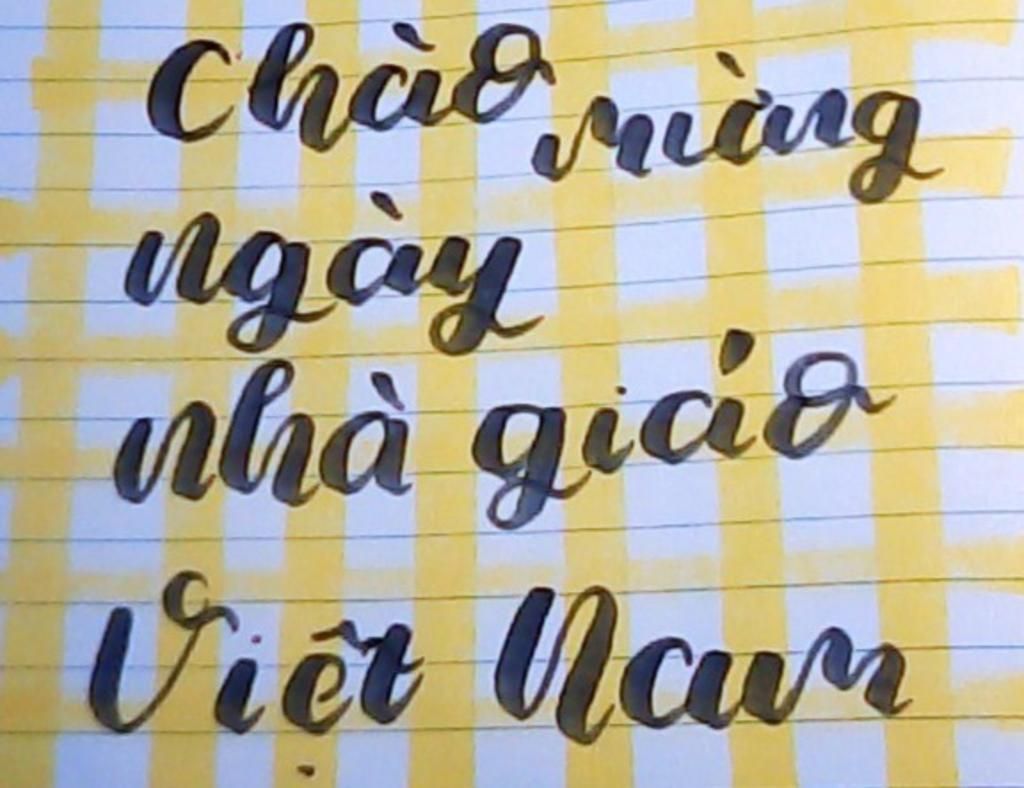 Chào mừng
ngày
nhà giáo
Việt Nam